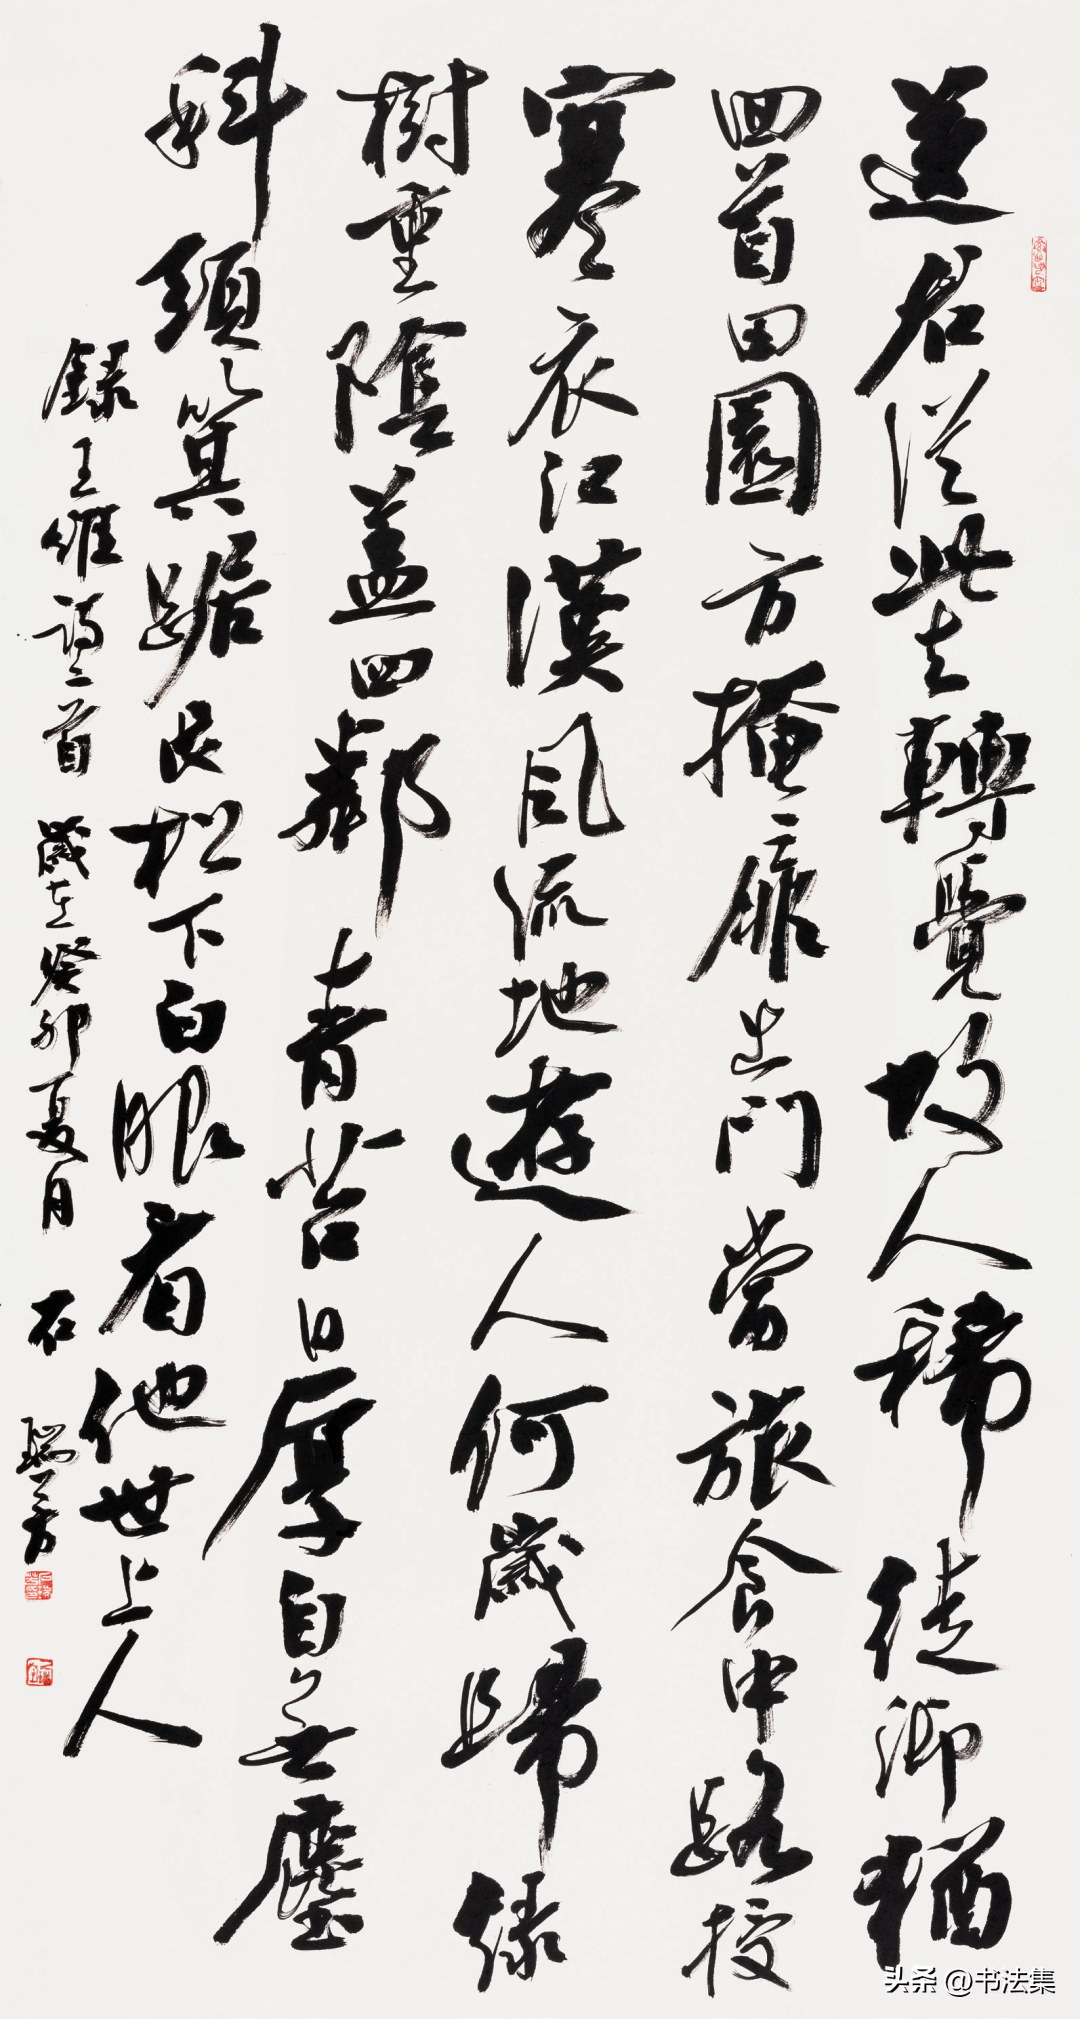 送君從此去轉覺故人稀徒御猶
回首田園方掩扉出門當旅食中路授
寒衣江漢風流地遊人何歲歸綠
樹重陰蓋四鄰青苔日厚自無塵
科頭箕踞長松下白眼看他世上人
錄王維詩二首 歲在癸卯夏月 石瑞芳
头条 @书法集